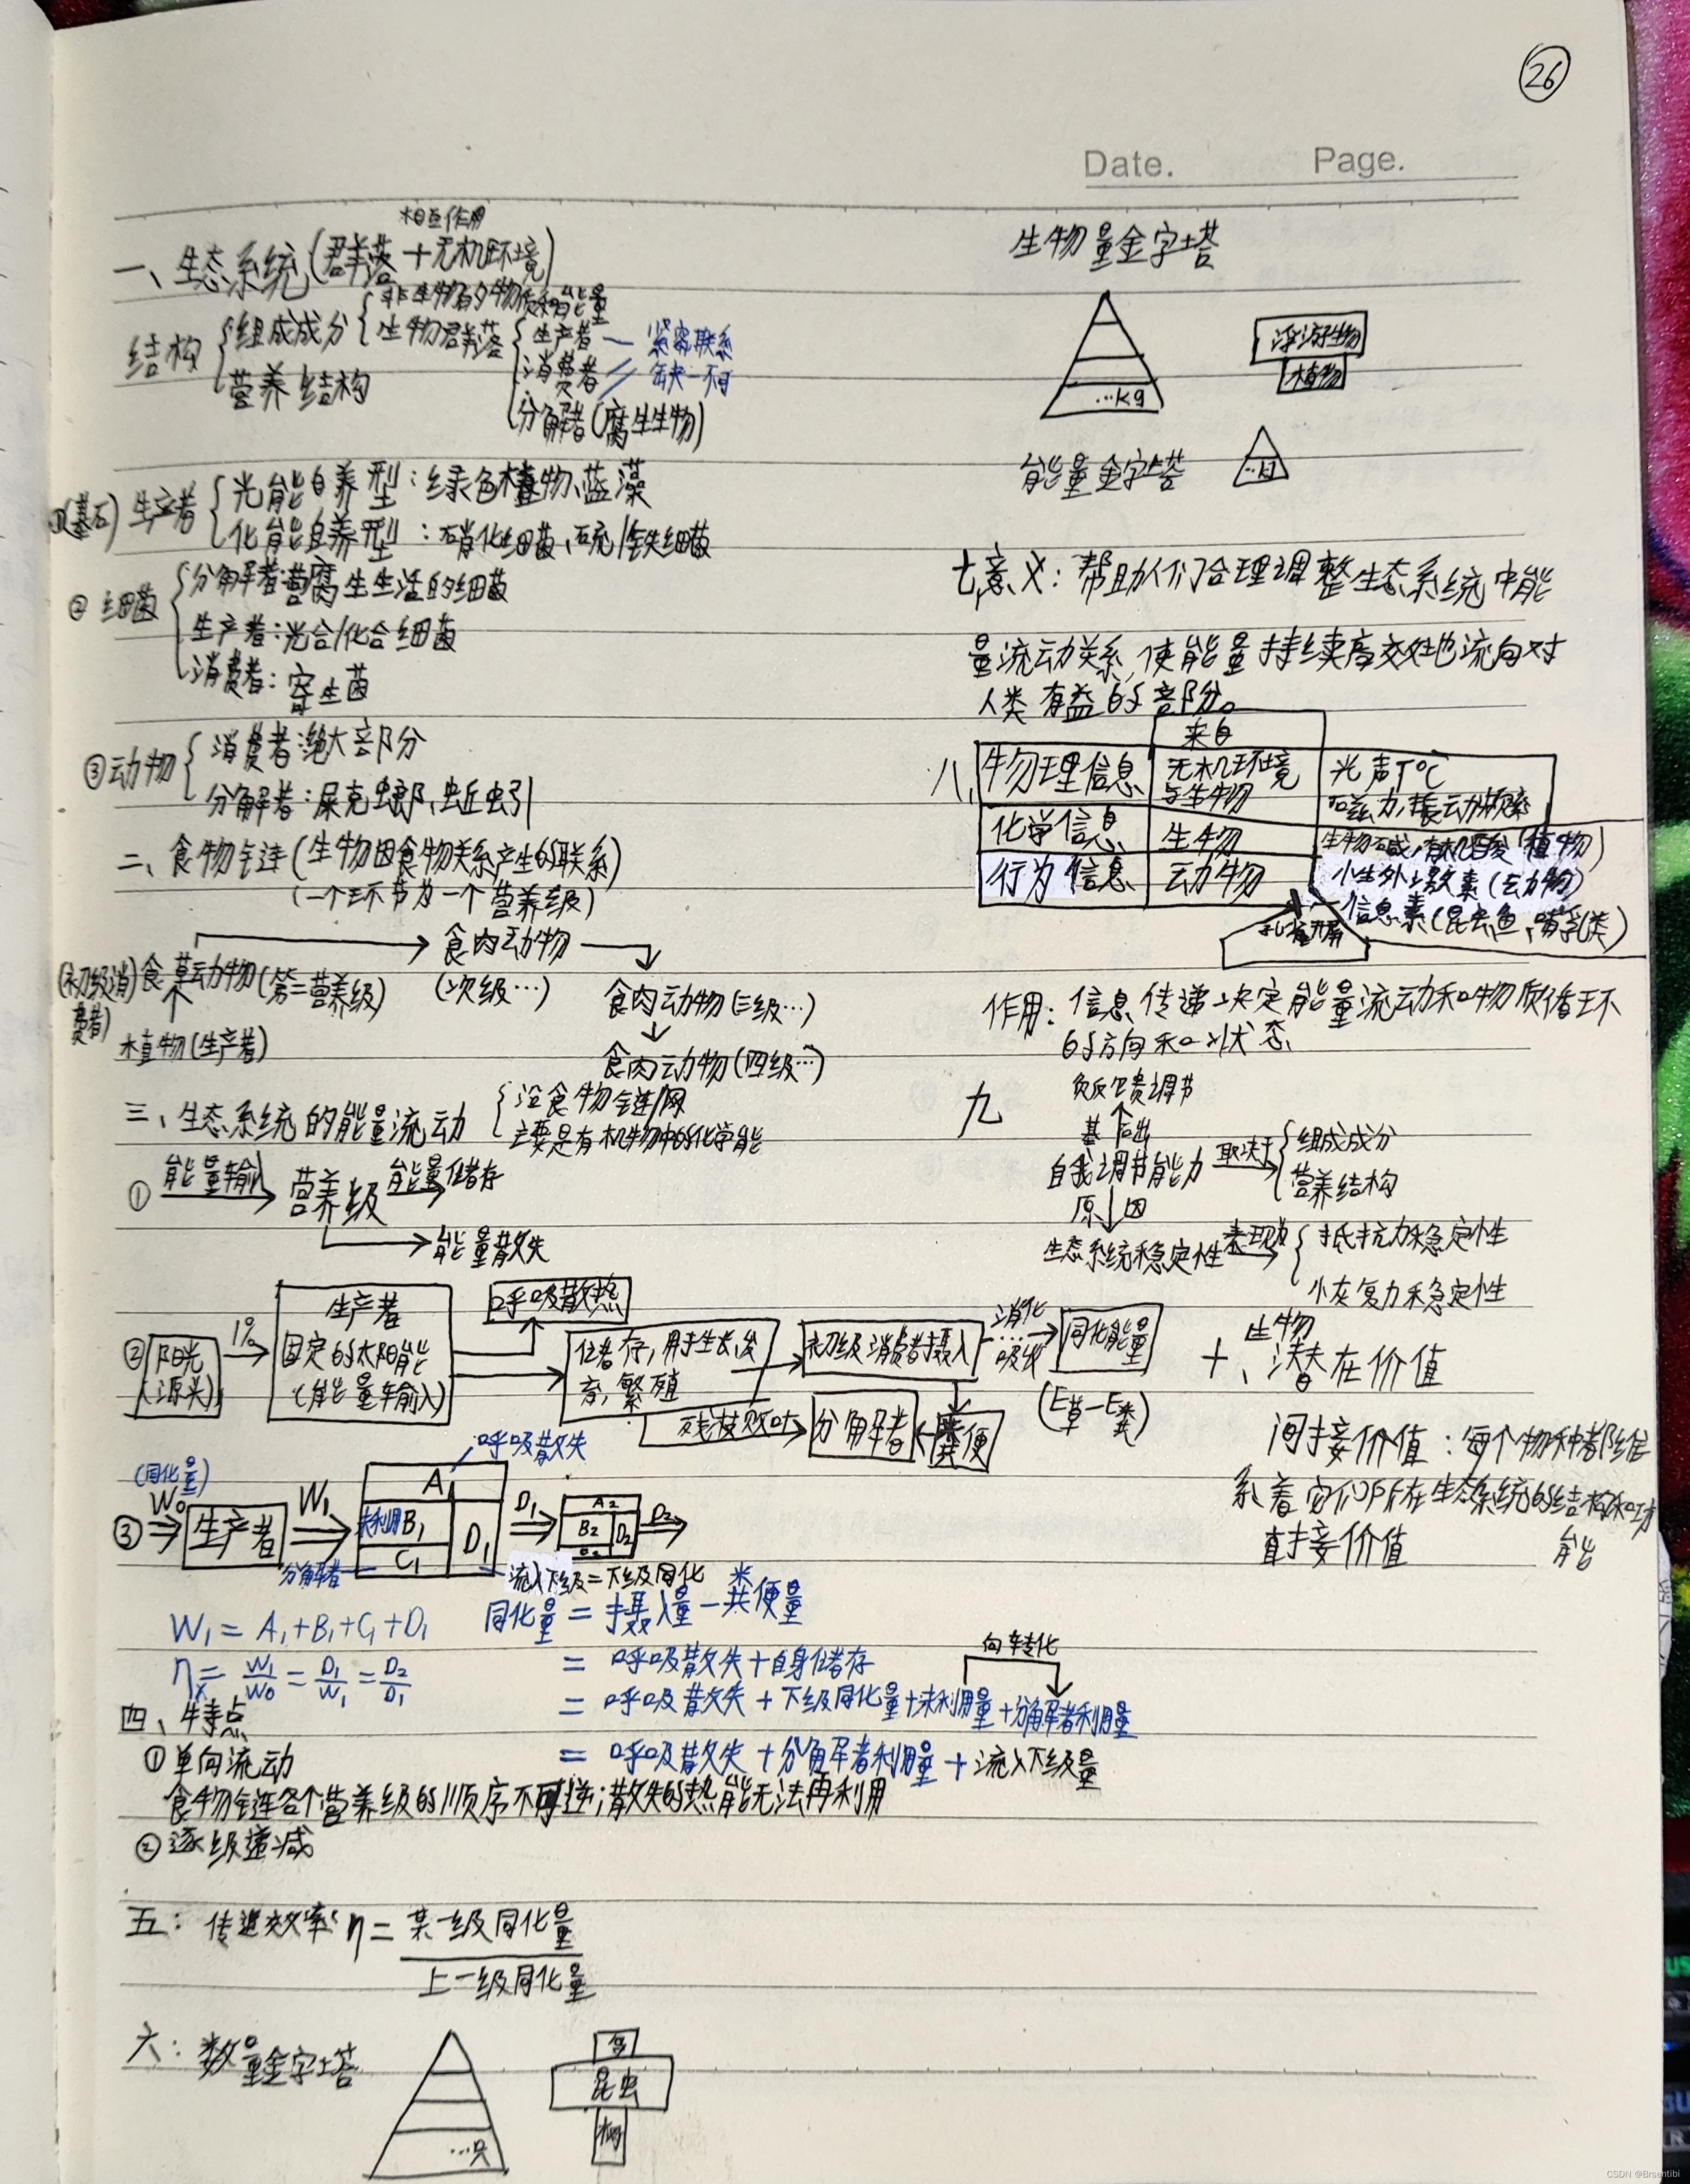 26
Date. Page.
相互作用
一、生态系统(群落+无机环境)
结构
组成成分
非生物的物质和能量
生物群落
生产者 — 紧密联系
消费者 缺一不可
分解者(腐生生物)
营养结构
①(基石)生产者
光能自养型:绿色植物、蓝藻
化能自养型:硝化细菌、硫/铁细菌
②细菌
分解者:营腐生生活的细菌
生产者:光合/化合细菌
消费者:寄生菌
③动物
消费者:绝大部分
分解者:屎克螂、蚯蚓
二、食物链(生物因食物关系产生的联系)
(一个环节为一个营养级)
食肉动物
(初级消费者)食草动物(第二营养级)
(次级…)
食肉动物(三级…)
植物(生产者)
食肉动物(四级…)
三、生态系统的能量流动
沿食物链/网
主要是有机物中的化学能
① 能量输入 营养级 能量储存
能量散失
② 阳光(源头)
1%
生产者
固定的太阳能
(能量输入)
呼吸散热
储存,用于生长,发育,繁殖
初级消费者摄入
消化
吸收
同化能量
(E草-E粪)
残枝败叶
分解者
粪便
呼吸散失
(同化量)
③ W₀ 生产者 W₁
A₁
未利用B₁
C₁
D₁
D₁
A₂
B₂
D₂
D₂
分解者
流入下级=下级同化
W₁=A₁+B₁+C₁+D₁
同化量=摄入量-粪便量
=呼吸散失+自身储存
η=W₁/W₀=D₁/W₁=D₂/D₁
向转化
=呼吸散失+下级同化量+未利用量+分解者利用量
=呼吸散失+分解者利用量+流入下级量
四、特点
①单向流动
食物链各个营养级的顺序不可逆;散失的热能无法再利用
②逐级递减
五:传递效率η=某一级同化量
上一级同化量
六:数量金字塔
…只
鸟
昆虫
树
生物量金字塔
…kg
浮游生物
植物
能量金字塔
七,意义:帮助人们合理调整生态系统中能
量流动关系,使能量持续高效地流向对
人类有益的部分。
八、
来自
物理信息 无机环境与生物 光声T℃
磁力,振动频率
化学信息 生物 生物碱,有机酸(植物)
性外激素(动物)
信息素(昆虫鱼,哺乳类)
行为信息 动物
孔雀开屏
作用:信息传递决定能量流动和物质循环
的方向和状态
九
负反馈调节
基础
自我调节能力 取决于
组成成分
营养结构
原因
生态系统稳定性 表现为
抵抗力稳定性
恢复力稳定性
十、生物潜在价值
间接价值:每个物种都维
系着它们所在生态系统的结构和功
能
直接价值
CSDN @Brsentibi